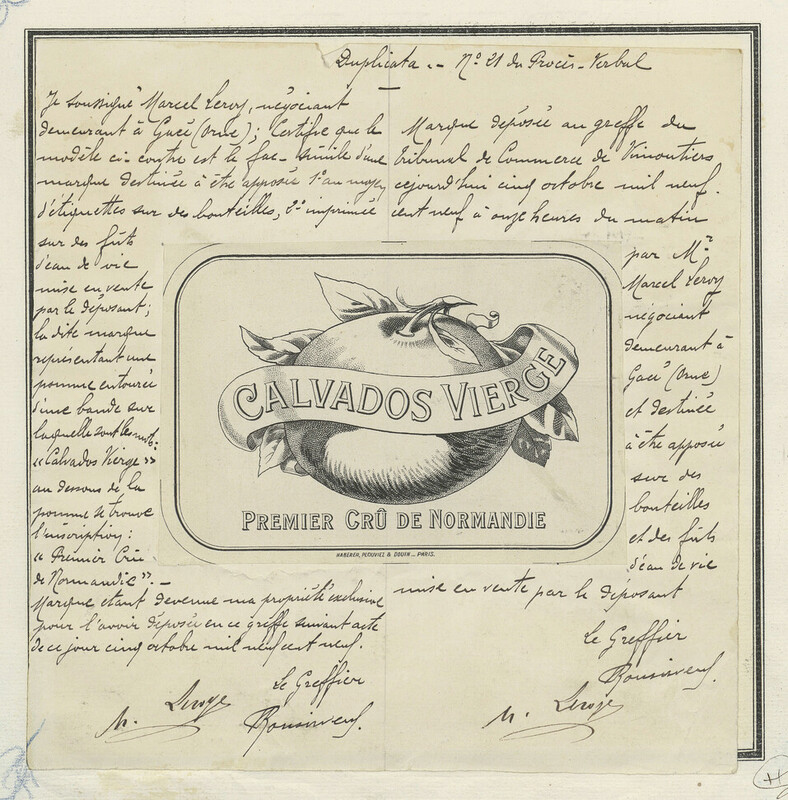 Duplicata . - Nº 21 du Procès-Verbal
Je soussigné Marcel Leroy, négociant
demeurant à Gacé (Orne) ; Certifie que le
modèle ci-contre est le fac-simile d'une
marque destinée à être apposée 1º au moyen
d'étiquettes sur des bouteilles, 2º imprimée
sur des fûts
d'eau de vie
mise en vente
par le déposant ;
la dite marque
représentant une
pomme entourée
d'une bande sur
laquelle sont les mots :
"Calvados Vierge"
au dessous de la
pomme se trouve
l'inscription :
"Premier Crû
de Normandie". -
Marque étant devenue ma propriété exclusive
pour l'avoir déposée en ce greffe suivant acte
de ce jour cinq octobre mil neuf cent neuf.
Le Greffier
M. Leroy
CALVADOS VIERGE
PREMIER CRÛ DE NORMANDIE
HABERER, PLOUVIEZ & DOUIN _ PARIS.
Marque déposée au greffe du
Tribunal de Commerce de Vimoutiers
cejourd'hui cinq octobre mil neuf.
cent neuf à onze heures du matin
par Mr
Marcel Leroy
négociant
demeurant à
Gacé (Orne)
et destinée
à être apposée
sur des
bouteilles
et des fûts
d'eau de vie
mise en vente par le déposant
Le Greffier
M. Leroy
H